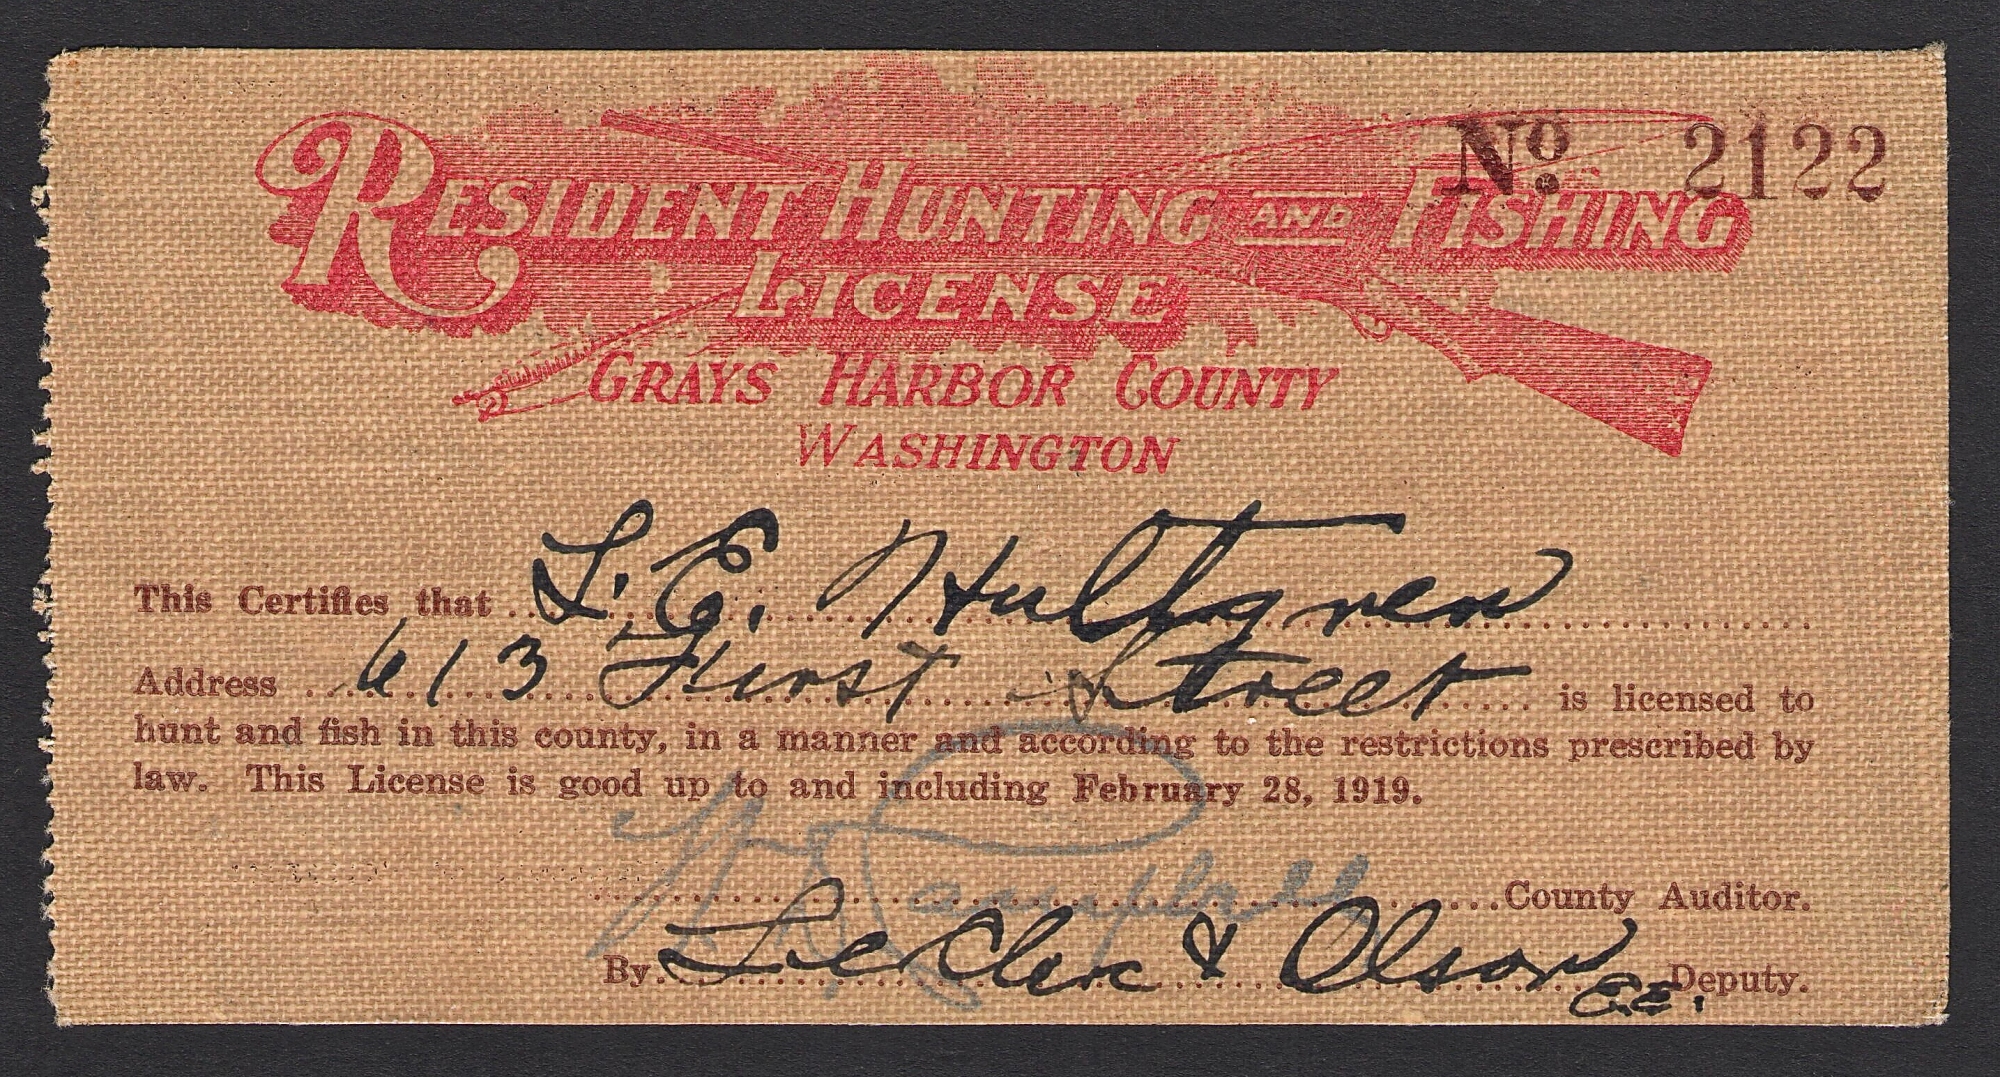 No. 2122
RESIDENT HUNTING AND FISHING
LICENSE
GRAYS HARBOR COUNTY
WASHINGTON
This Certifies that L. E. Hultgren
Address 613 First Street is licensed to
hunt and fish in this county, in a manner and according to the restrictions prescribed by
law. This License is good up to and including February 28, 1919.
County Auditor.
By LeClerc & Olson Deputy.